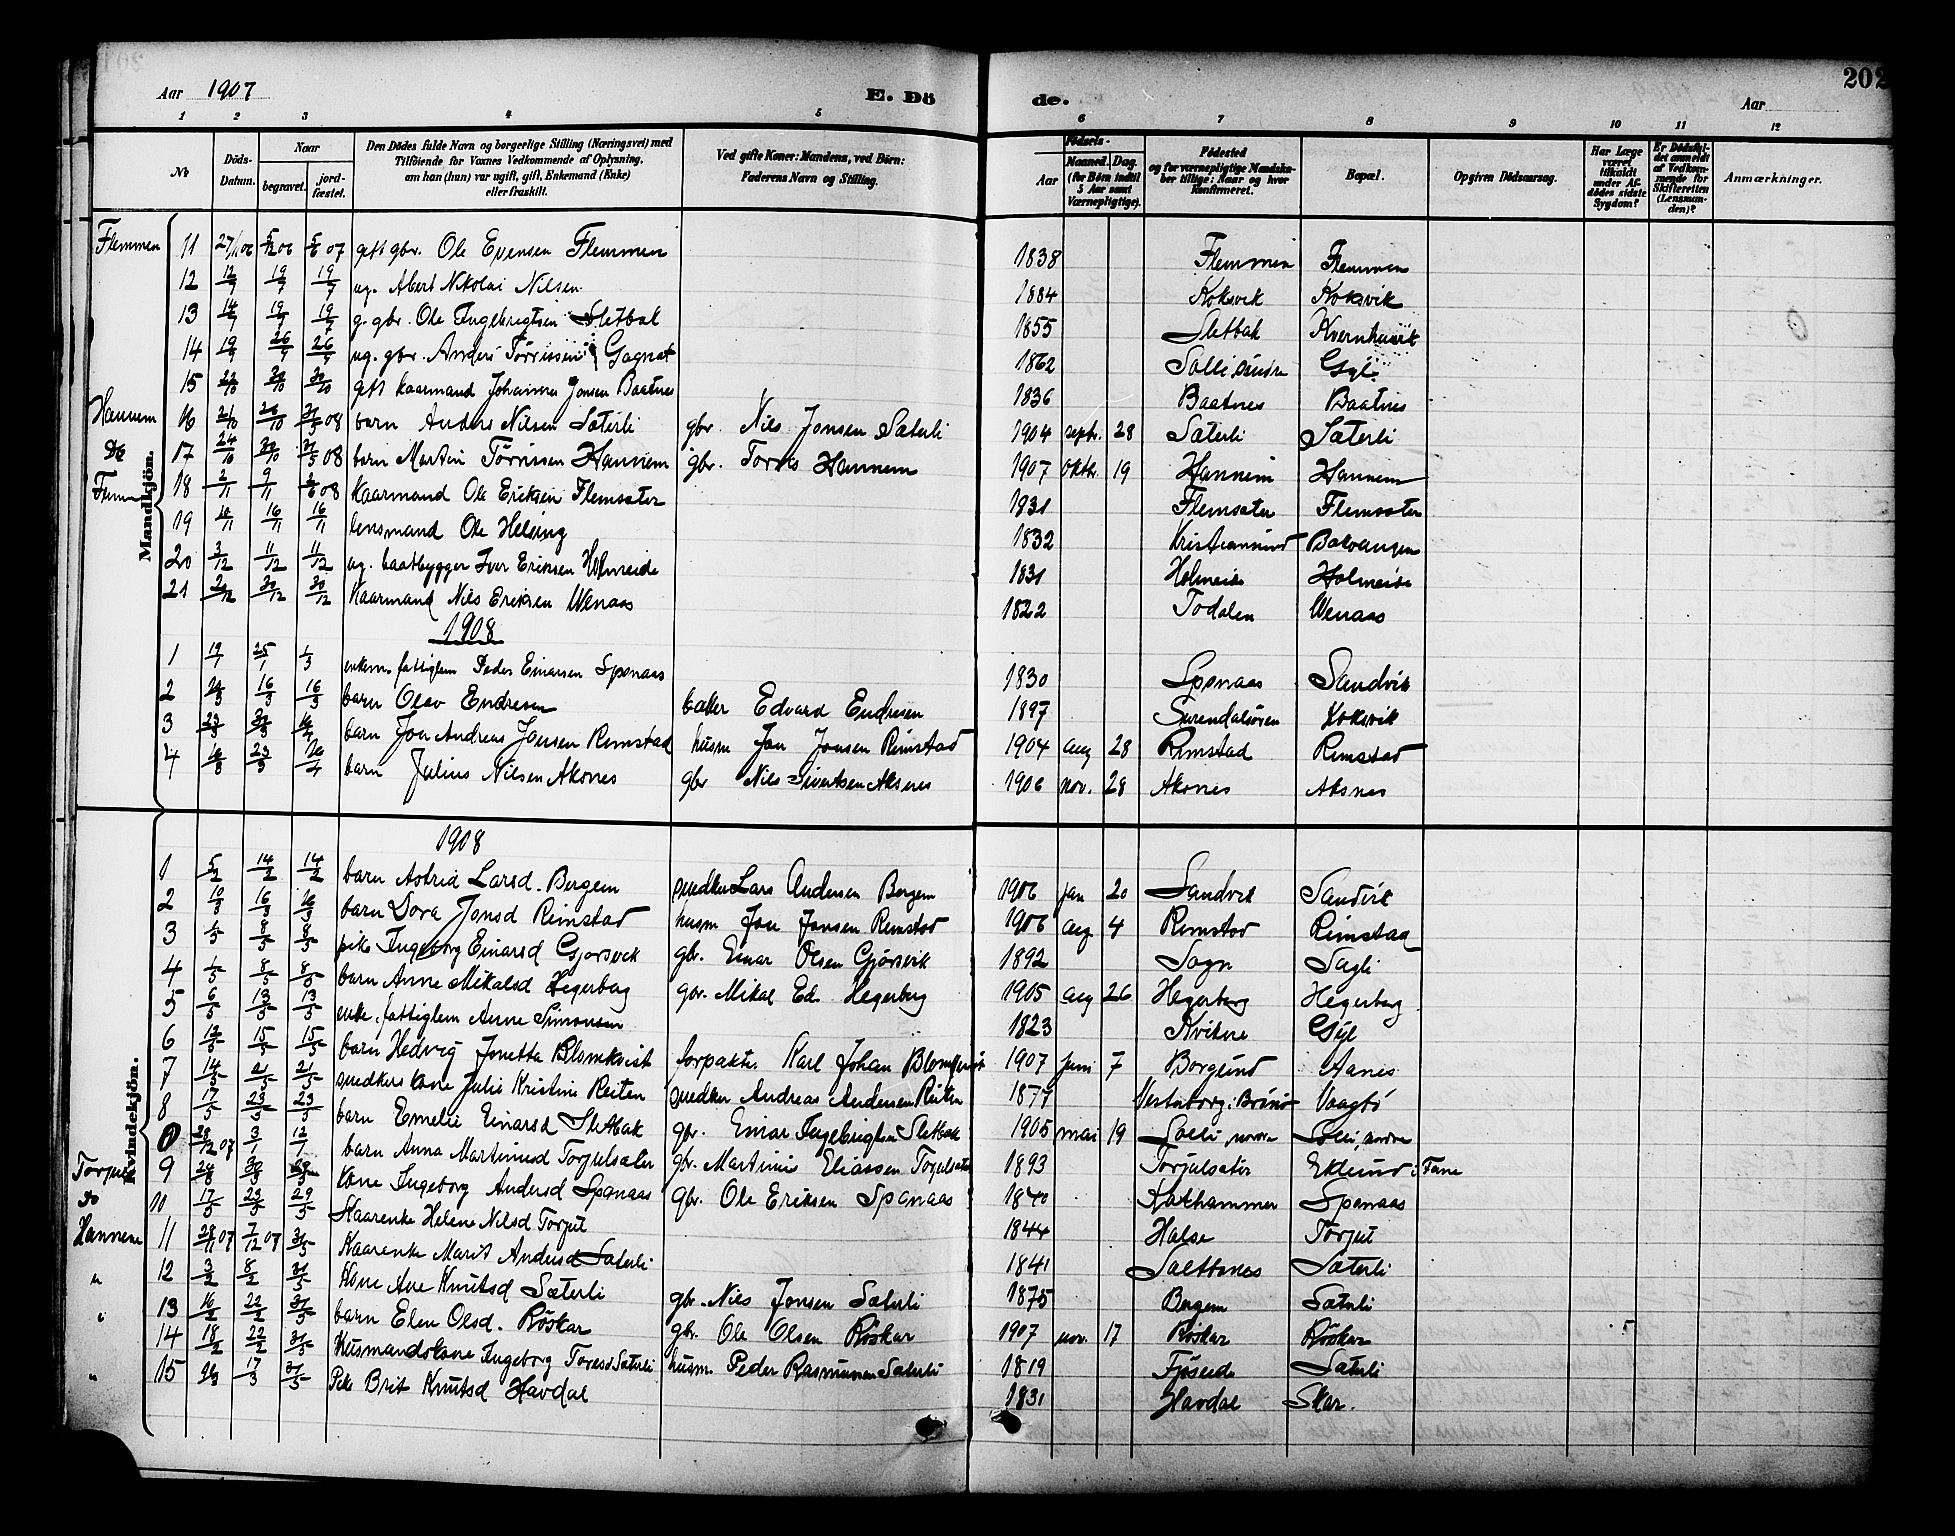 202
Aar 1907 E. Dö de. Aar
1 2 3 4 5 6 7 8 9 10 11 12
No Döds-Datum. Naar begravet. jord-fæstet. Den Dödes fulde Navn og borgerlige Stilling (Næringsvei) med Tilföiende for Voxnes Vedkommende af Oplysning, om han (hun) var ugift, gift, Enkemand (Enke) eller fraskilt. Ved gifte Koner: Mandens, ved Börn: Faderens Navn og Stilling. Födsels- Aar Maaned. Dag. (for Børn indtil 5 Aar samt Værnepligtige). Födested og for værnepligtige Mandskaber tillige: Naar og hvor konfirmeret. Bopæl. Opgiven Dödsaarsag. Har Læge været tilkaldt under Afdödes sidste Sygdom? Er Dödsfaldet anmeldt af Vedkommende for Skifteretten (Lensmanden)? Anmærkninger.
Mandkjön.
Flemmen 11 27/11 06 5/12 06 5/6 07 gift gbr. Ole Evensen Flemmen 1838 Flemmen Flemmen
12 19/7 19/7 ug. Albert Nikolai Nilsen 1884 Koksvik Koksvik
13 19/7 19/7 g. gbr. Ole Ingebrigtsen Sletbak 1855 Sletbak Kvernhusvik
14 ug. gbr. Anders Tørrissen Gagnat 1862 Solli, søndre Gyl
15 gift kaarmand Johannes Jonsen Baatnes 1836 Baatnes Baatnes
Hannem 16 barn Anders Nilsen Sæterli gbr. Nils Jonsen Sæterli 1904 septr. 28 Sæterli Sæterli
Do 17 24/10 30/10 31/5 08 barn Martin Tørrissen Hannem gbr. Hannem 1907 oktbr. 19 Hannem Hannem
18 2/11 9/11 08 kaarmand Ole Eriksen Flemsæter 1831 Flemsæter Flemsæter
19 10/11 16/11 16/11 lensmand Ole Helsing 1832 Kristianssund Bolvangen
20 3/12 11/12 11/12 ug. baatbygger Iver Eriksen Holmeide 1831 Holmeide Holmeide
21 30/12 30/12 Kaarmand Nils Eriksen Wenaas 1822 Todalen Wenaas
1908
1 19/1 25/1 1/3 enkem. fattiglem Peder Einarsen Spønaas 1830 Spønaas Sandvik
2 16/3 16/3 barn Olav Endresen Edvard Endresen 1897 Surendalsøren Koksvik
3 barn Jon Andreas Jonsen Rimstad husm Jon Jonsen Rimstad 1904 aug 28 Rimstad Rimstad
4 barn Julius Nilsen Aksnes gbr Nils Sivertsen Aksnes 1906 nov. 28 Aksnes Aksnes
Kvindekjön.
1908
1 5/2 14/2 14/2 barn Astrid Larsd. Bergem snedker Lars Andersen Bergem 1906 jan 20 Sandvik Sandvik
2 10/3 16/3 16/3 barn Dora Jonsd Rimstad husm Jon Jonsen Rimstad 1906 aug 4 Rimstad Rimstad
3 8/5 8/5 pike Ingeborg Einarsd Gjørsvik gbr. Einar Olsen Gjørsvik 1892 Sogn Sagli
4 1/5 8/5 8/5 barn Anne Mikalsd Hegerberg gbr. Mikal Ed. Hegerberg 1905 aug 26 Hegerberg Hegerberg
5 6/5 13/5 13/5 enke, fattiglem Anne Simonsen 1823 Kvikne Gyl
6 15/5 15/5 barn Hedvig Jonetta Blomkvist forpakter Karl Johan Blomkvist 1907 juni 7 Borgund Aanes
7 14/5 21/5 21/5 snedkers kone Julie Kristine Reiten snedker Andreas Andersen Reiten 1877 Vaagbø
8 17/5 23/5 23/5 barn Emelie Einarsd Sletbak gbr. Einar Ingebrigtsen Sletbak 1905 mai 19 Solli, nordre Solli, nordre
07 3/1 12/1 barn Anna Martinusd Torjulsæter gbr. Martinus Eliassen Torjulsæter 1893 Torjulsæter
9 kone Ingeborg Andersd Spønaas gbr. Ole Eriksen Spønaas 1840 Kathammer Spønaas
Do 10 17/5 23/5 29/5 Kaarenke Helene Nilsd Torjul 1844 Halse Torjul
Hannem 11 28/11 07 7/12 07 31/5 Kaarenke Marit Andersd Sæterli 1841 Sæterli
" 12 3/2 8/2 31/5 Kone Ane Knutsd Sæterli gbr. Nils Jonsen Sæterli 1875 Bergem Sæterli
" 13 16/2 22/2 31/5 barn Elen Olsd. Røskar gbr. Ole Olsen Røskar 1907 nov. 17 Røskar Røskar
14 18/2 22/2 31/5 Husmandskone Ingeborg Toresd Sæterli husm. Peder Rasmussen Sæterli 1819 Fjøseide Sæterli
" 15 17/3 31/5 Pike Brit Knutsd Havdal 1831 Havdal Skar.